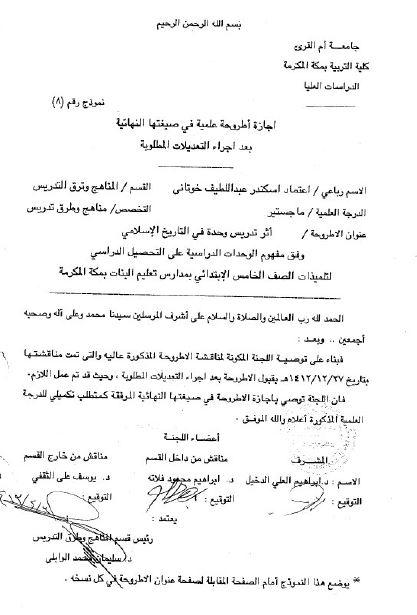 بسم الله الرحمن الرحيم
جامعة أم القرى
كلية التربية بمكة المكرمة
الدراسات العليا
نموذج رقم (٨)
اجازة أطروحة علمية في صيغتها النهائية
بعد اجراء التعديلات المطلوبة
الاسم رباعي / اعتماد اسكندر عبداللطيف خوتاني القسم / المناهج وترق التدريس
الدرجة العلمية / ماجستير التخصص / مناهج وطرق تدريس
عنوان الاطروحة / أثر تدريس وحدة في التاريخ الإسلامي
وفق مفهوم الوحدات الدراسية على التحصيل الدراسي
لتلميذات الصف الخامس الإبتدائي بمدارس تعليم البنات بمكة المكرمة
الحمد لله رب العالمين والصلاة والسلام على أشرف المرسلين سيدنا محمد وعلى آله وصحبه
أجمعين .. وبعد :
فبناء على توصية اللجنة المكونة لمناقشة الاطروحة المذكورة عاليه والتى تمت مناقشتها
بتاريخ ١٤١٢/١٢/٢٧هـ بقبول الاطروحة بعد اجراء التعديلات المطلوبة ، وحيث قد تم عمل اللازم.
فان اللجنة توصي باجازة الاطروحة في صيغتها النهائية المرفقة كمتطلب تكميلي للدرجة
العلمية المذكورة أعلاه والله الموفق .
أعضاء اللجنة
المشرف مناقش من داخل القسم مناقش من خارج القسم
الاسم : د.ابراهيم العلي الدخيل د. ابراهيم محمود فلاته د. يوسف على الثقفي
التوقيع : التوقيع : التوقيع :
يعتمد :
رئيس قسم المناهج وطرق التدريس
د. سليمان محمد الوابلي
* يوضع هذا النموذج أمام الصفحة المقابلة لصفحة عنوان الاطروحة في كل نسخه .